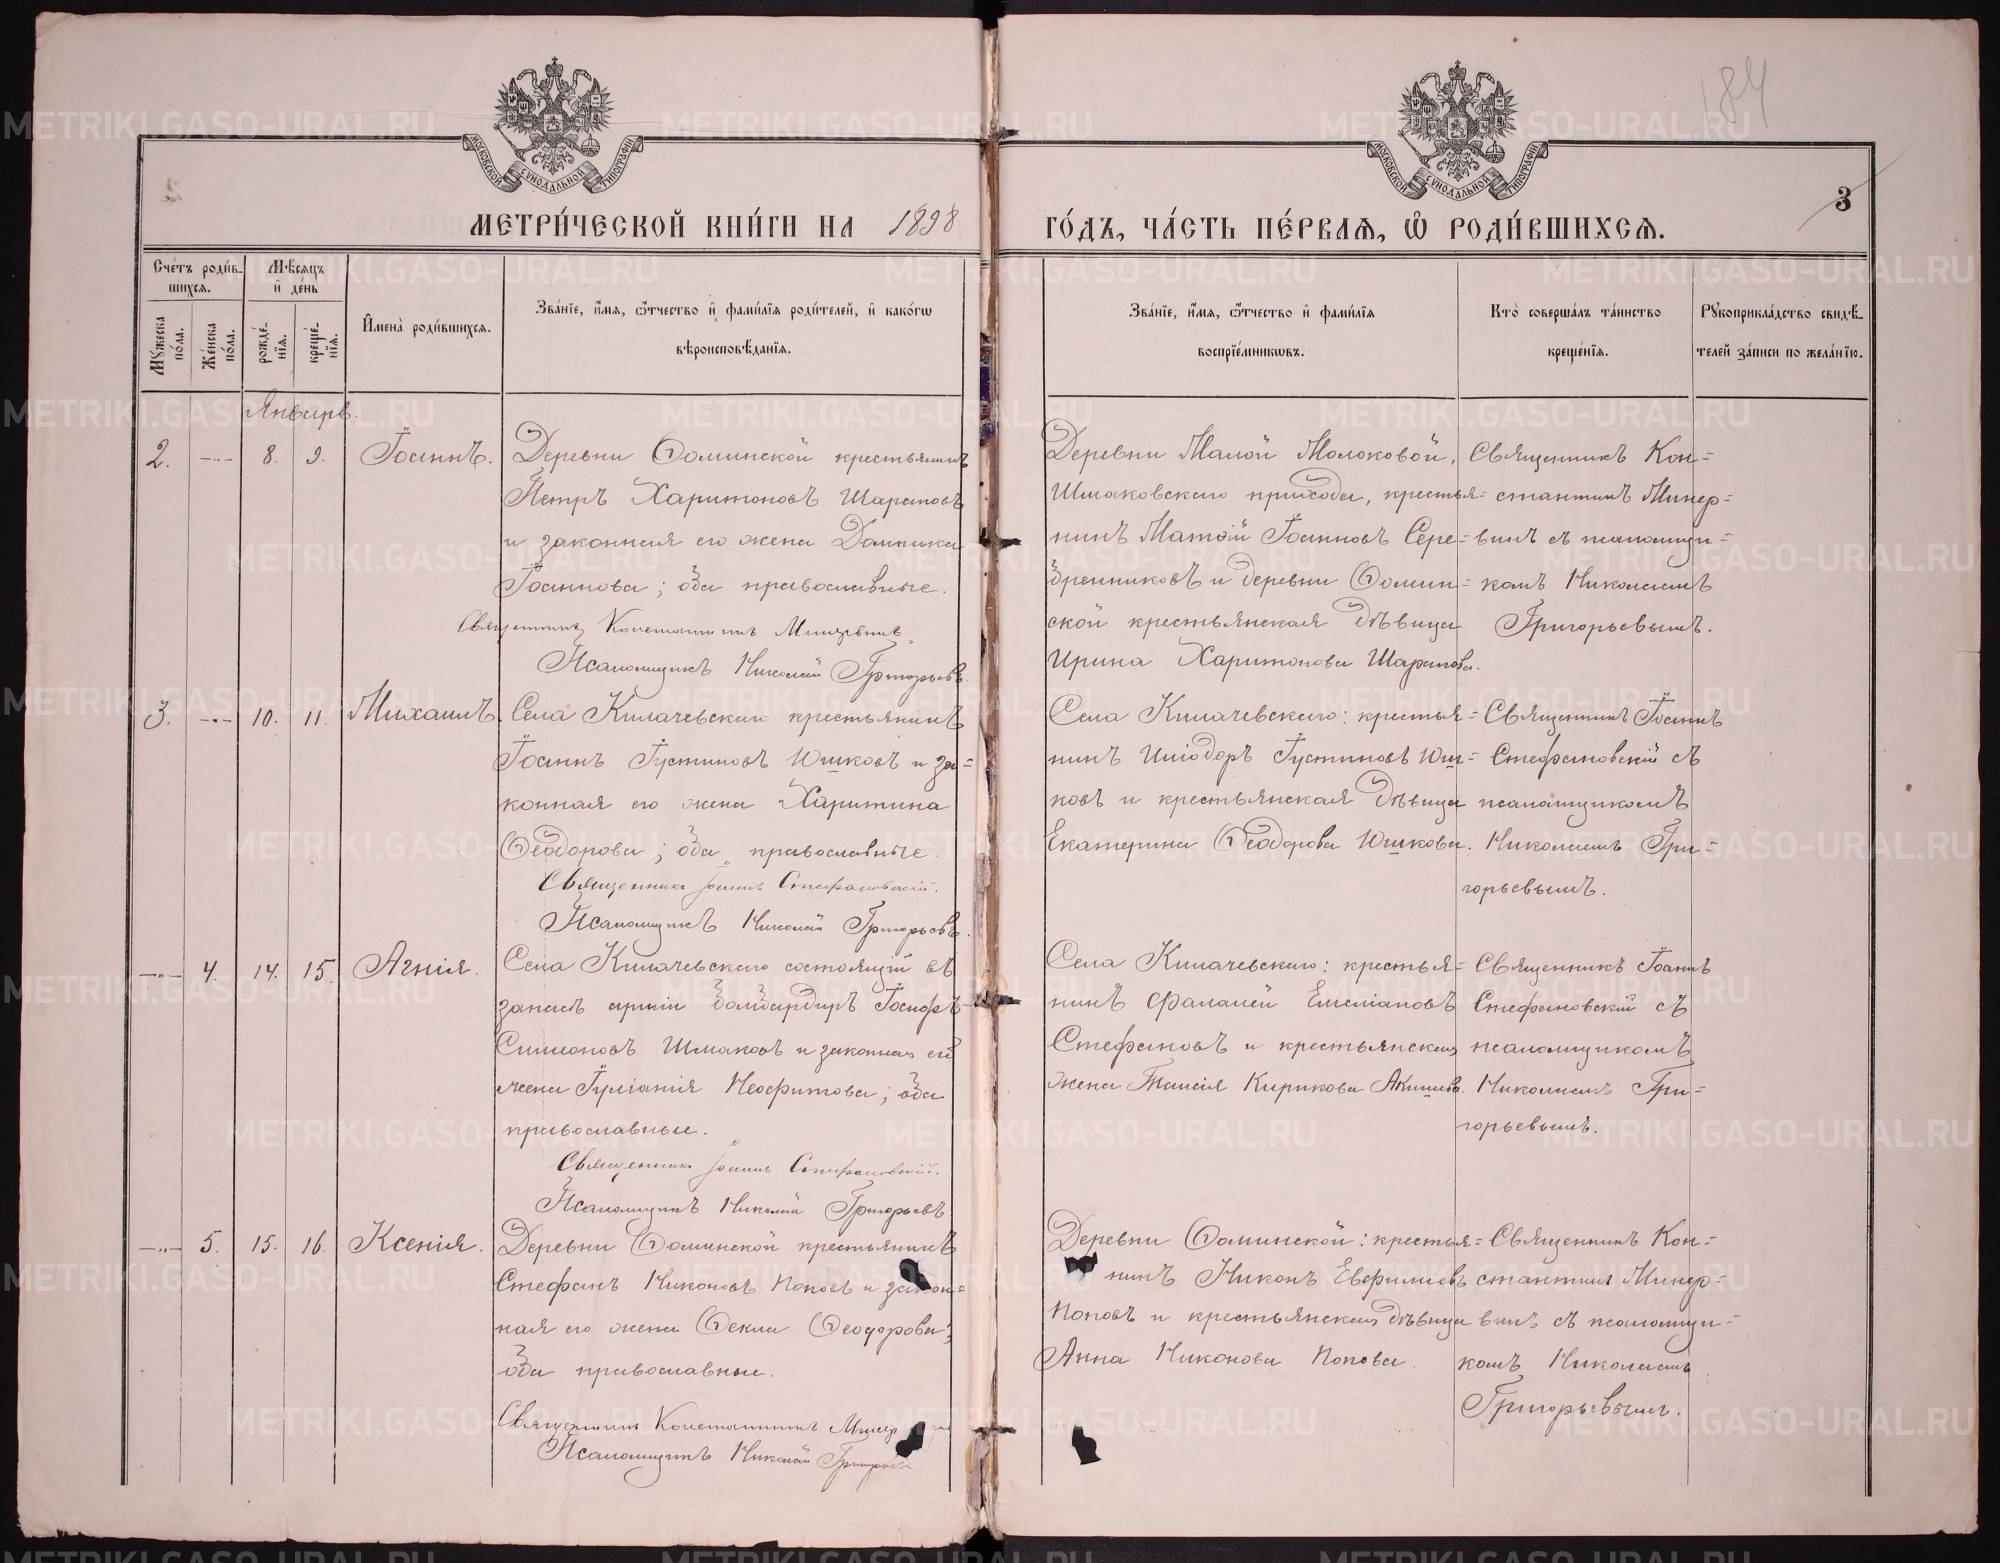 184
3
МОСКОВСКОЙ СУНОДАЛЬНОЙ ТИПОГРАФІИ
МОСКОВСКОЙ СУНОДАЛЬНОЙ ТИПОГРАФІИ
МЕТРИ́ЧЕСКОЙ КНИ́ГИ НА 1898 ГО́ДЪ, ЧА́СТЬ ПЕ́РВАЯ, Ѿ РОДИ́ВШИХСЯ.
Сче́тъ роди́в-
шихся.
Мꙋжеска по́ла.
Же́нска по́ла.
Мѣ́сяцъ
и҆ де́нь
рожде́-
нїя.
креще́-
нїя.
И҆мена̀ роди́вшихся.
Зва́нїе, и҆́мя, ѻ҆́тчество и҆ фами́лїя роди́телей, и҆ како́гѡ
вѣроисповѣ́данїя.
Зва́нїе, и҆́мя, ѻ҆́тчество и҆ фами́лїя
воспрїе́мникѡвъ.
Кто̀ соверша́лъ та́инство
креще́нїя.
Рꙋкоприкла́дство свидѣ́-
телей за́писи по жела́нїю.
Январь.
2. —„— 8. 9. Іоаннъ.
Деревни Ѳоминской крестьянинъ
Петръ Харитоновъ Шараповъ
и законная его жена Домника
Іоаннова; оба православные.
Священникъ Константинъ Минервинъ
Псаломщикъ Николай Григорьевъ.
Деревни Малой Молоковой,
Шмаковскаго прихода, крестья=
нинъ Матѳій Іоанновъ Сере=
бренниковъ и деревни Ѳомин=
ской крестьянская дѣвица
Ирина Харитонова Шарапова.
Священникъ Кон=
стантинъ Минер=
винъ съ псаломщи=
комъ Николаемъ
Григорьевымъ.
3. —„— 10. 11. Михаилъ.
Села Килачевскаго крестьянинъ
Іоаннъ Іустиновъ Юшковъ и за=
конная его жена Харитина
Ѳеодорова; оба православные.
Священникъ Іоаннъ Стефановскій.
Псаломщикъ Николай Григорьевъ.
Села Килачевскаго: крестья=
нинъ Иліодоръ Іустиновъ Юш=
ковъ и крестьянская дѣвица
Екатерина Ѳеодорова Юшкова.
Священникъ Іоаннъ
Стефановскій съ
псаломщикомъ
Николаемъ Гри=
горьевымъ.
—„— 4. 14. 15. Агнія.
Села Килачевскаго состоящій въ
запасѣ арміи бомбардиръ Іосифъ
Симеоновъ Шмаковъ и законная его
жена Іуліанія Неофитова; оба
православные.
Священникъ Іоаннъ Стефановскій.
Псаломщикъ Николай Григорьевъ
Села Килачевскаго: крестья=
нинъ Фалалей Емеліановъ
Стефановъ и крестьянская
жена Таисія Кирикова Акишева.
Священникъ Іоаннъ
Стефановскій съ
псаломщикомъ
Николаемъ Гри=
горьевымъ.
—„— 5. 15. 16. Ксенія.
Деревни Ѳоминской крестьянинъ
Стефанъ Никоновъ Поповъ и закон=
ная его жена Ѳекла Ѳеодорова;
оба православные.
Священникъ Константинъ
Псаломщикъ Николай Григорьевъ
Деревни Ѳоминской: крестья=
нинъ Никонъ Евфиміевъ
Поповъ и крестьянская дѣвица
Анна Никонова Попова.
Священникъ Кон=
стантинъ Минер=
винъ съ псаломщи=
комъ Николаемъ
Григорьевымъ.
METRIKI.GASO-URAL.RU